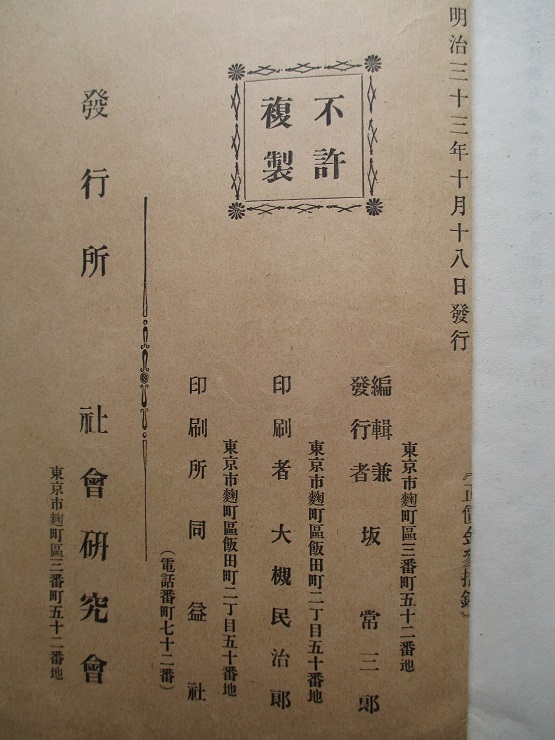 明治三十三年十月十八日發行
不許
複製
東京市麴町區三番町五十二番地
編輯兼
發行者 坂常三郎
東京市麴町區飯田町二丁目五十番地
印刷者 大槻民治郎
東京市麴町區飯田町二丁目五十番地
印刷所 同益社
(電話番町七十二番)
發行所 社會研究會
東京市麴町區三番町五十二番地